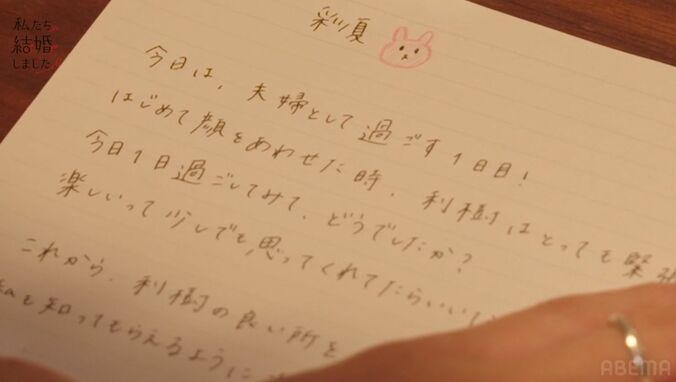 私たち
結婚
しました
彩夏
今日は、夫婦として過ごす1日目!
はじめて顔をあわせた時、利樹はとっても緊張
今日1日過ごしてみて、どうでしたか?
楽しいって少しでも思ってくれてたらいいな
これから、利樹の良い所を
私も知ってもらえるように
ABEMA